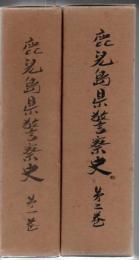 鹿児島県警察史
第一巻
鹿児島県警察史
第二巻